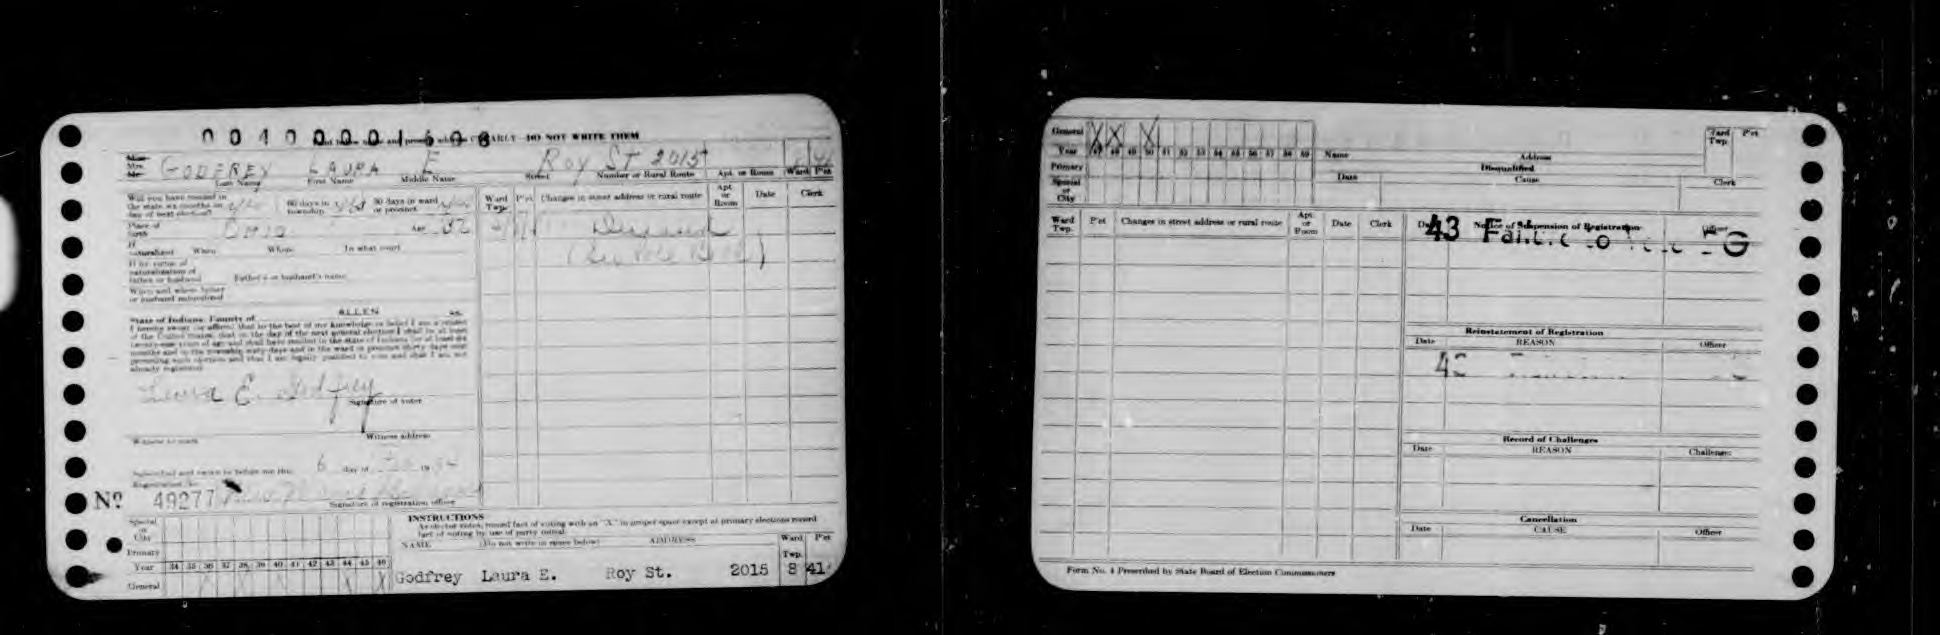 00400001608
PRINT below name and present address CLEARLY—DO NOT WRITE THEM
Mrs. GODFREY LAURA E ROY ST 2015 8 41
Last Name First Name Middle Name Street Number or Rural Route Apt. or Room Ward P'ct
Will you have resided in
the state six months on
day of next election? yes 60 days in township yes 30 days in ward or precinct yes
Place of birth OHIO Age
If naturalized When Where In what court
If by virtue of
naturalization of
father or husband Father's or husband's name
When and where father
or husband naturalized
State of Indiana, County of ALLEN ss.
I hereby swear (or affirm) that to the best of my knowledge or belief I am a citizen
of the United States, that on the day of the next general election I shall be at least
twenty-one years of age and shall have resided in the state of Indiana for at least six
months and in the township sixty days and in the ward or precinct thirty days next
preceding such election and that I am legally qualified to vote and that I am not
already registered
Laura E. Godfrey
Signature of voter
Witness to mark Witness address
Subscribed and sworn to before me this 6 day of 19 34
Registration No.
Nº 49277
Signature of registration officer
Ward Twp. P'ct Changes in street address or rural route Apt. or Room Date Clerk
Deceased
Special or City
Primary
Year 34 35 36 37 38 39 40 41 42 43 44 45 46
General X X X X
INSTRUCTIONS
As elector votes, record fact of voting with an "X" in proper space except at primary elections record
fact of voting by use of party initial.
NAME (Do not write in space below) ADDRESS Ward Twp. P'ct
Godfrey Laura E. Roy St. 2015 8 41
General X X X
Year 47 48 49 50 51 52 53 54 55 56 57 58 59
Primary
Special or City
Name Address Ward Twp. P'ct
Disqualified
Date Cause Clerk
Ward Twp. P'ct Changes in street address or rural route Apt. or Room Date Clerk
Notice of Suspension of Registration
Date Officer
43 Failure to Vote G
Reinstatement of Registration
Date REASON Officer
Record of Challenges
Date REASON Challenger
Cancellation
Date CAUSE Officer
Form No. 4 Prescribed by State Board of Election Commissioners